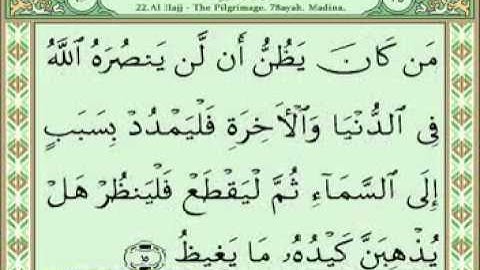 22.Al Hajj - The Pilgrimage. 78ayah. Madina.
مَن كَانَ يَظُنُّ أَن لَّن يَنصُرَهُ ٱللَّهُ
فِى ٱلدُّنْيَا وَٱلْأَخِرَةِ فَلْيَمْدُدْ بِسَبَبٍ
إِلَى ٱلسَّمَآءِ ثُمَّ لْيَقْطَعْ فَلْيَنظُرْ هَلْ
يُذْهِبَنَّ كَيْدُهُۥ مَا يَغِيظُ ١٥